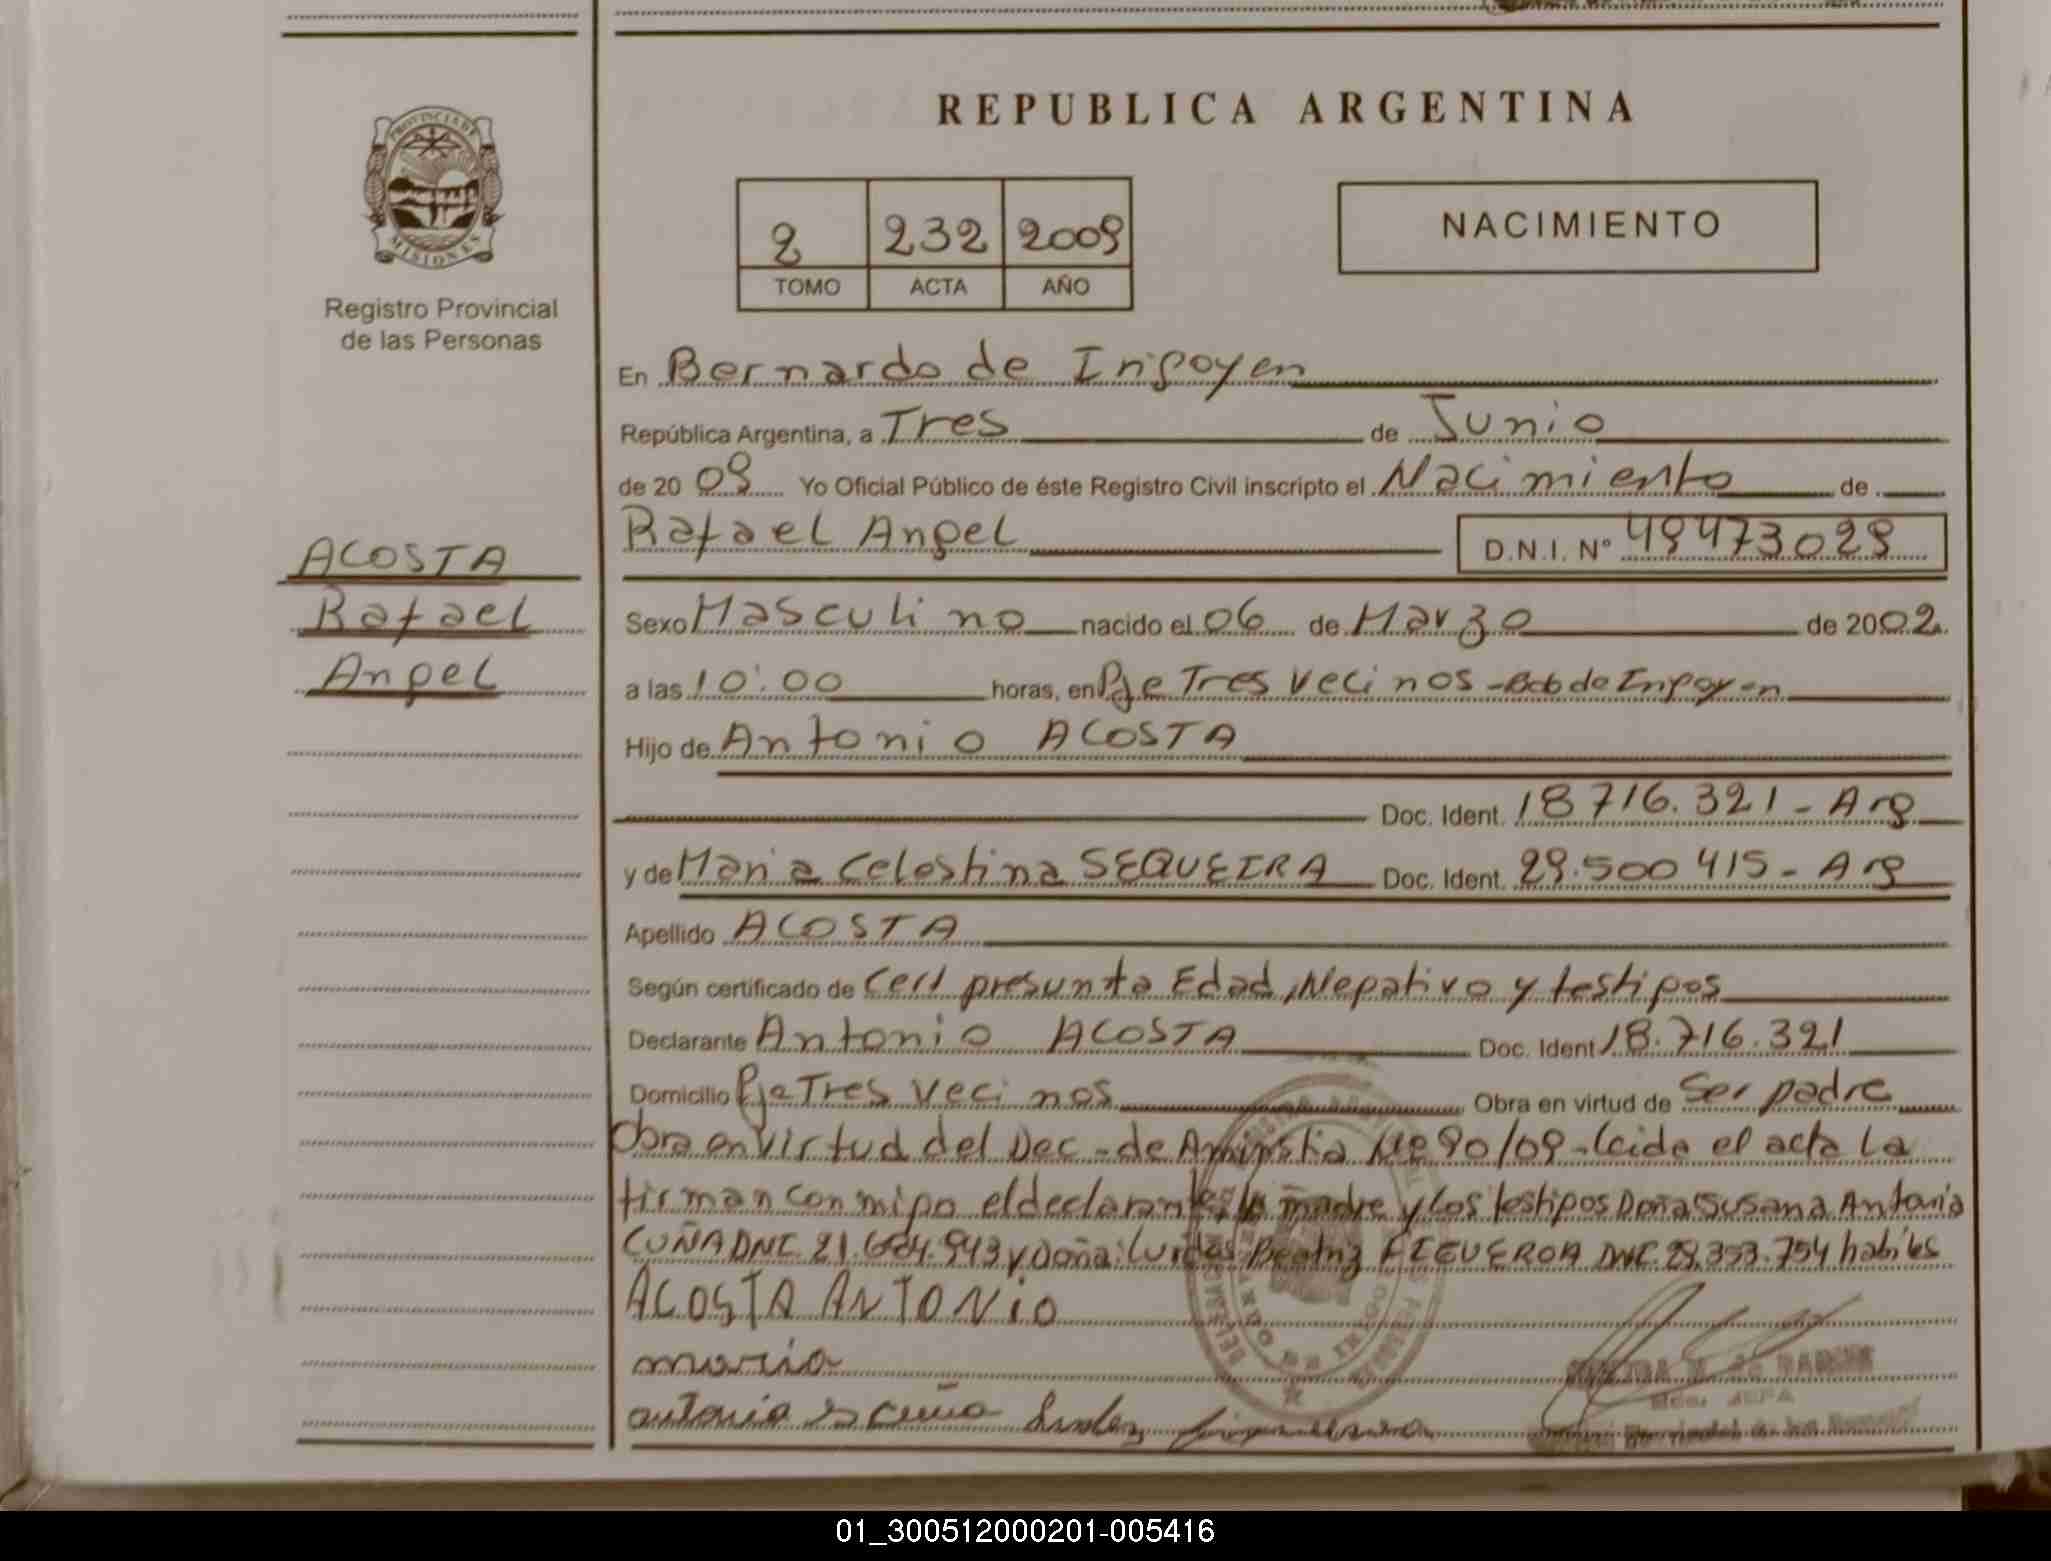 REPUBLICA ARGENTINA
PROVINCIA DE
MISIONES
Registro Provincial
de las Personas
2 232 2009
TOMO ACTA AÑO
NACIMIENTO
En Bernardo de Irigoyen
República Argentina, a Tres de Junio
de 20 09 Yo Oficial Público de éste Registro Civil inscripto el Nacimiento de
Rafael Angel D.N.I. Nº 49473029
ACOSTA
Rafael
Angel
Sexo Masculino nacido el 06 de Marzo de 2002
a las 10:00 horas, en Pje Tres Vecinos - Bdo de Irigoyen
Hijo de Antonio ACOSTA
Doc. Ident. 18716.321 - Arg
y de Maria Celestina SEQUEIRA Doc. Ident. 29.500415 - Arg
Apellido ACOSTA
Según certificado de Cert presunta Edad, Negativo y testigos
Declarante Antonio ACOSTA Doc. Ident 18.716.321
Domicilio Pje Tres Vecinos Obra en virtud de Ser padre
Obra en virtud del Dec - de Aminstia Nº 90/09 - Leida el acta La
firman conmigo el declarante, la madre y los testigos Doña Susana Antonia
CUÑA DNI. 21.684.943 y Doña: Lurdes Beatriz FIGUEROA DNI. 29.353.754 habiles
ACOSTA ANTONIO
maria
antonia cuña Lurdes
JEFA
01_300512000201-005416